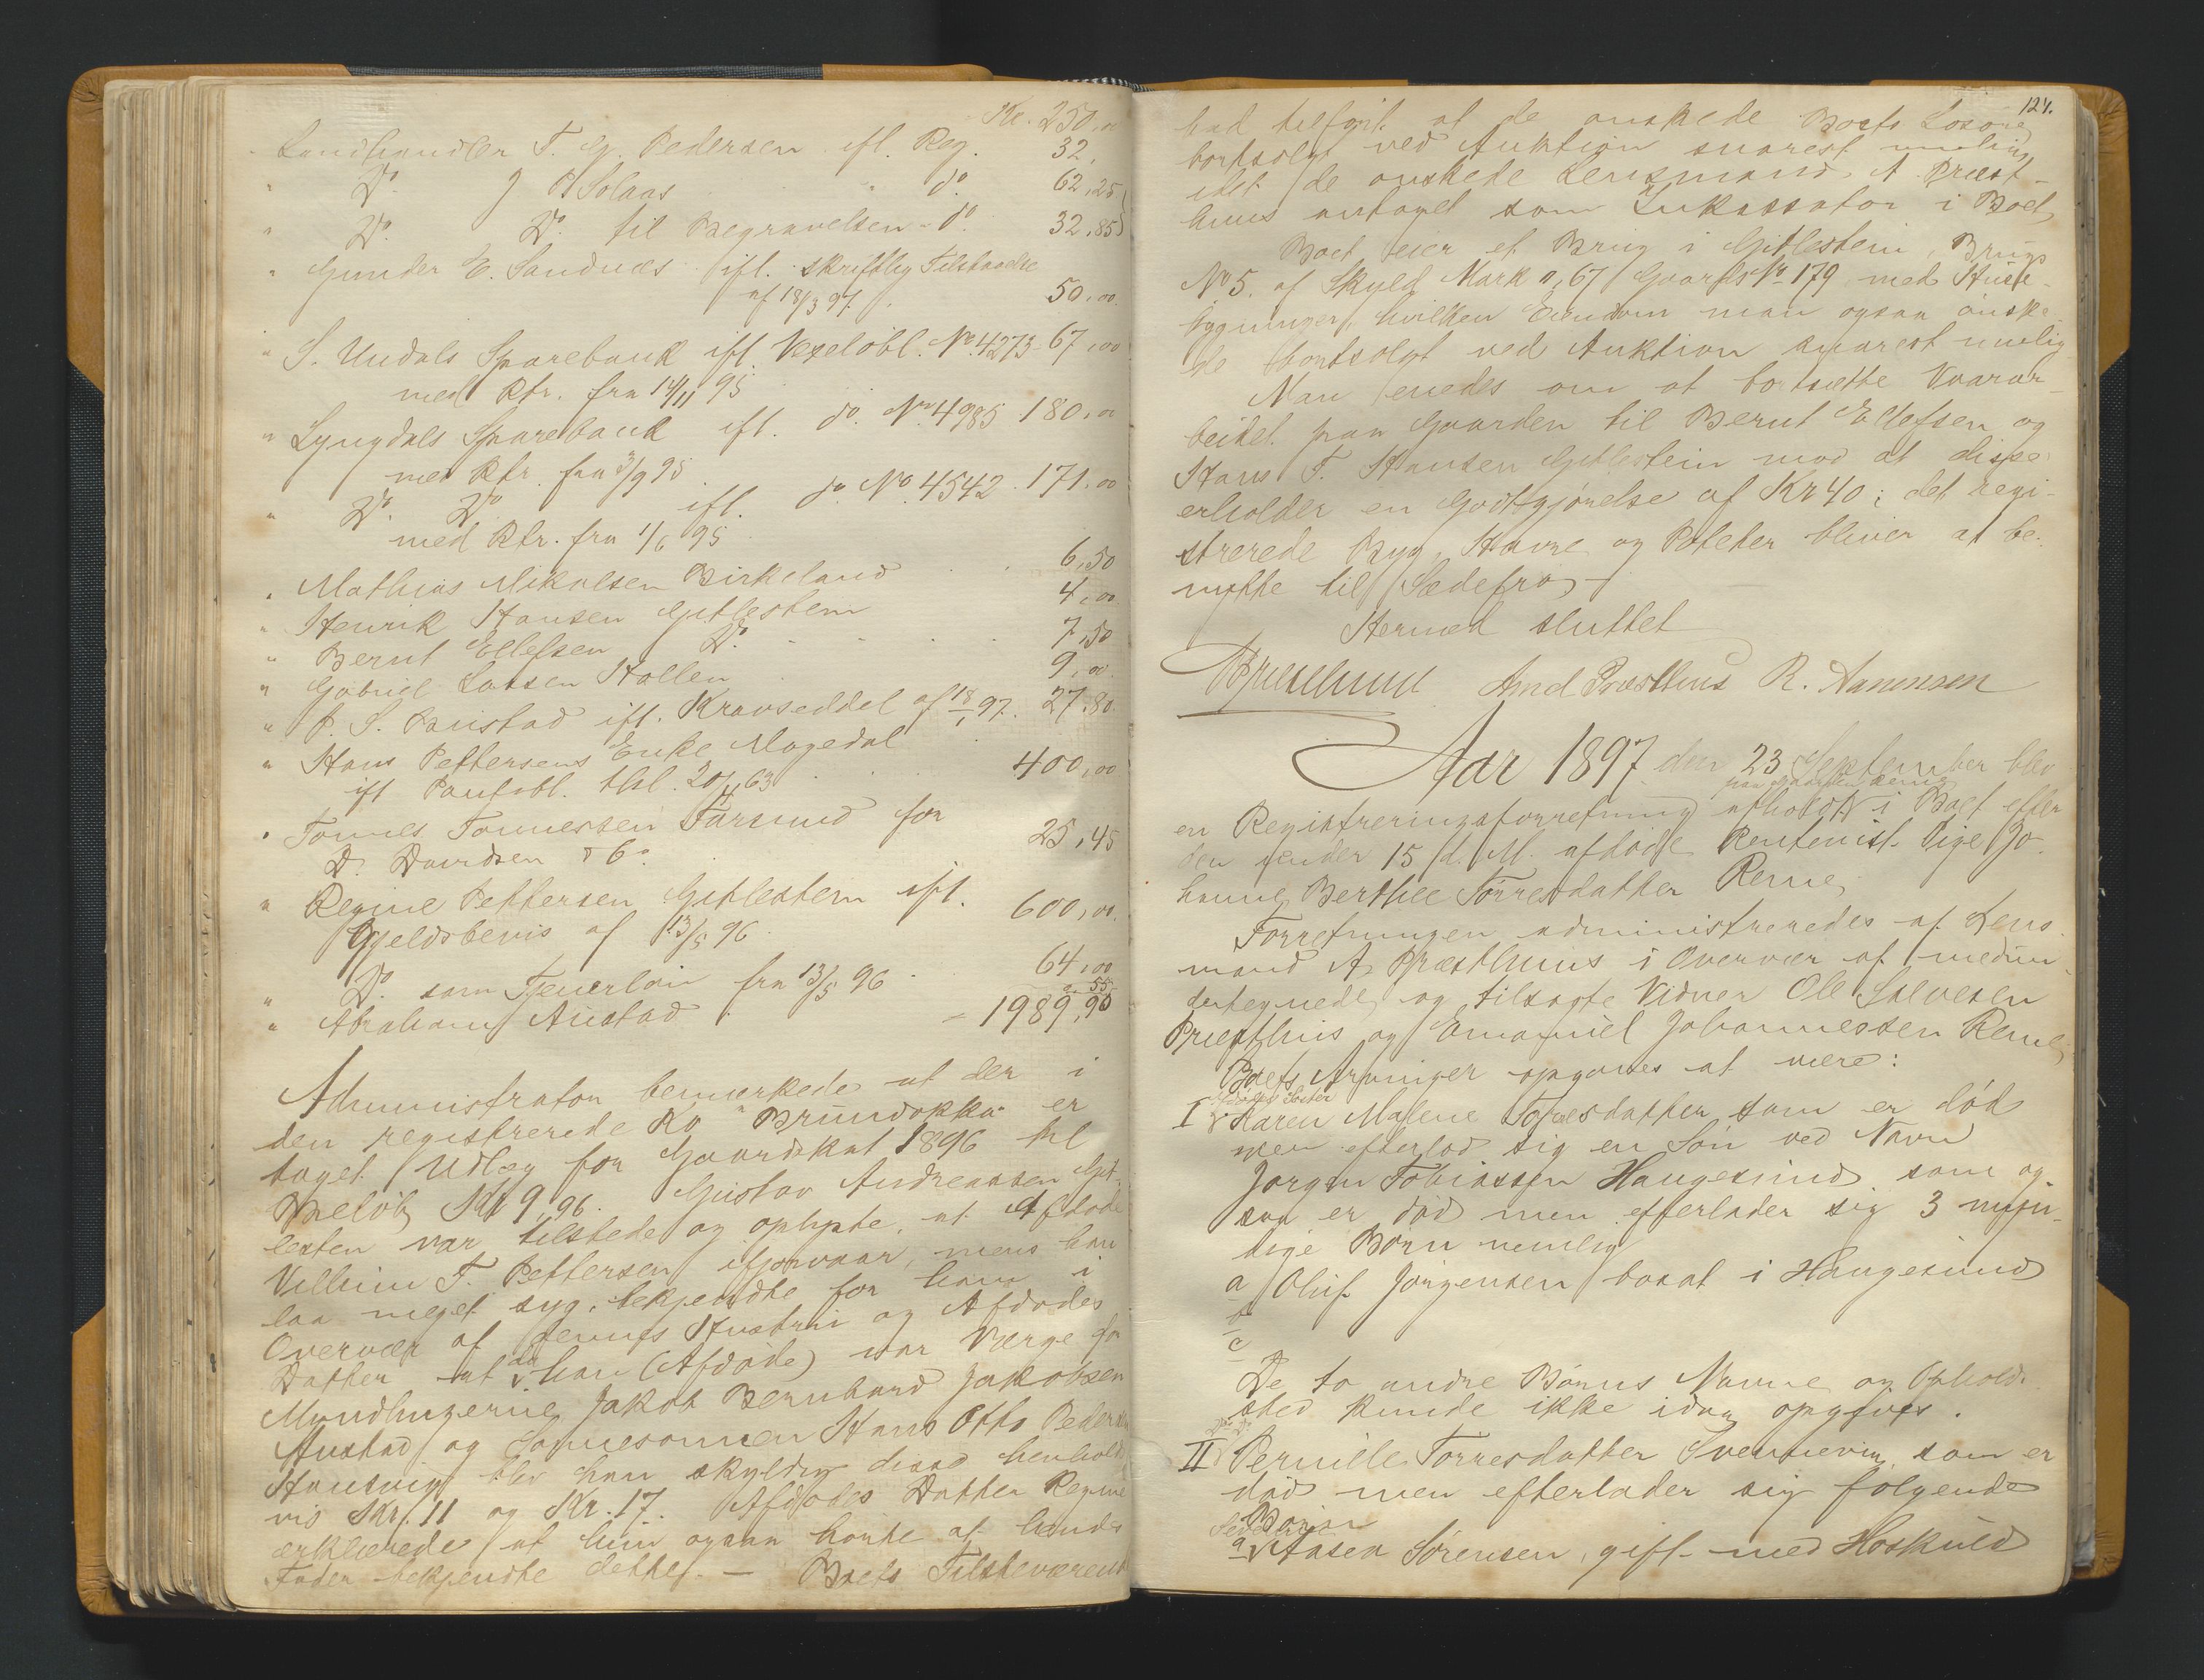 Kr. 250,00
" Landhandler T. G. Pedersen ifl. Reg. 32,
" Do. J P Solaas " do. 62,25
" Do. Do. til Begravelsen - do. 32,85
" Gunder E. Sandnæs ifl. skriftlig Tilstaaelse
af 18/3 97. 50,00
" S. Undals Sparebank ifl. Vexelobl. No. 4273 - 67,00
med Rtr. fra 14/11 95
" Lyngdals Sparebank ifl. do. No 4985 180,00
med Rtr. fra 3/9 95
" Do. Do ifl. do. No. 4542 . 171.00
med Rtr. fra 1/6 95
" Mathias Mikalsen Birkeland 6,50
" Henrik Hansen Gitlestein 4,00
" Bernt Ellefsen Do. 7,50
" Gabriel Larsen Hallen 9,00
" P. S. Baustad ifl. Kravseddel af 18/1 97. 27.80
" Hans Pettersens Enke Møgedal
ifl Pantobl. thl. 20/4 63 400,00
" Tønnes Tønnessen Farsund for
D. Davidsen & Co. 25,45
" Regine Pettersen Gitlestein ifl.
Gjeldsbevis af 13/5 96. 600,00.
" Do. som Tjenerløn fra 13/5 96 64,00
" Abraham Austad 2.55
- 1989,90
Administrator bemærkede at der i
den registrerede Ko "Brundokka" er
taget Udlæg for Gaardskat 1896 til
Beløb Kr 9,96. Gustav Andreassen Git-
lesten var tilstede og oplyste, at Afdøde
Vilhelm T. Pettersen ifjorvaar, mens han
laa meget syg, bekjendte for ham i
Overvær af dennes Hustru og Afdødes
Datter at da han (Afdøde) var Værge for
Myndlingerne Jakob Bernhard Jakobsen
Austad og Sønnesønnen Hans Otto Pedersen
Hausvig blev han skyldig disse henholds
vis Kr. 11 og Kr. 17. Afdødes Datter Regine
erklærede at hun ogsaa hørte af hendes
Fader bekjendte dette. — Boets Tilsteværende
124.
had tilføit at de ønskede Boets Løsøre
bortsolgt ved Auktion snarest mulig
idet de ønskede Lensmand A Præst-
huus antaget som Inkassator i Boet,
Boet eier et Brug i Gitlestein, Brugs
No 5. af Skyld Mark 0,67 Gaards No 179 med Huse
bygninger, hvilken Eiendom man ogsaa ønske-
de bortsolgt ved Auktion snarest mulig
Man enedes om at bortsætte Vaarar-
beidet paa Gaarden til Bernt Ellefsen og
Hans T. Hansen Gitlestein mod at disse
erholder en Godtgjørelse af Kr 40; det regi-
strerede Byg, Havre og Poteter bliver at be-
nytte til Sædefrø -
Hermed sluttet
Arnd Præsthuus R. Aanensen
Aar 1897 den 23 September blev
paa Gaarden Reme
en Registreringsforretning afholdt i Boet efter
den under 15 d. M. afdøde Rentenist. Pige Jo-
hanne Berthee Tørresdatter Reme,
Forretningen administreredes af Lens-
mand A Præsthuus i Overvær af medun-
dertegnede og tilsagte Vidner Ole Salvesen
Præsthus og Emanuel Johannessen Reme
Boets Arvinger opgaves at være:
Afdødes Søster
I Karen Malene Tørresdatter som er død
men efterlod sig en Søn ved Navn
Jørgen Tobiassen Haugesund som og-
saa er død men efterlader sig 3 myn-
dige Børn nemlig
a Oluf Jørgensen bosat i Haugesund
b
c
De to andre Børns Navne og Opholds-
sted kunde ikke idag opgives.
Do. Do.
II Pernille Tørresdatter Svennevig, som er
død men efterlader sig følgende
Børn
a Aasen Sørensen, gift med Hoskuld